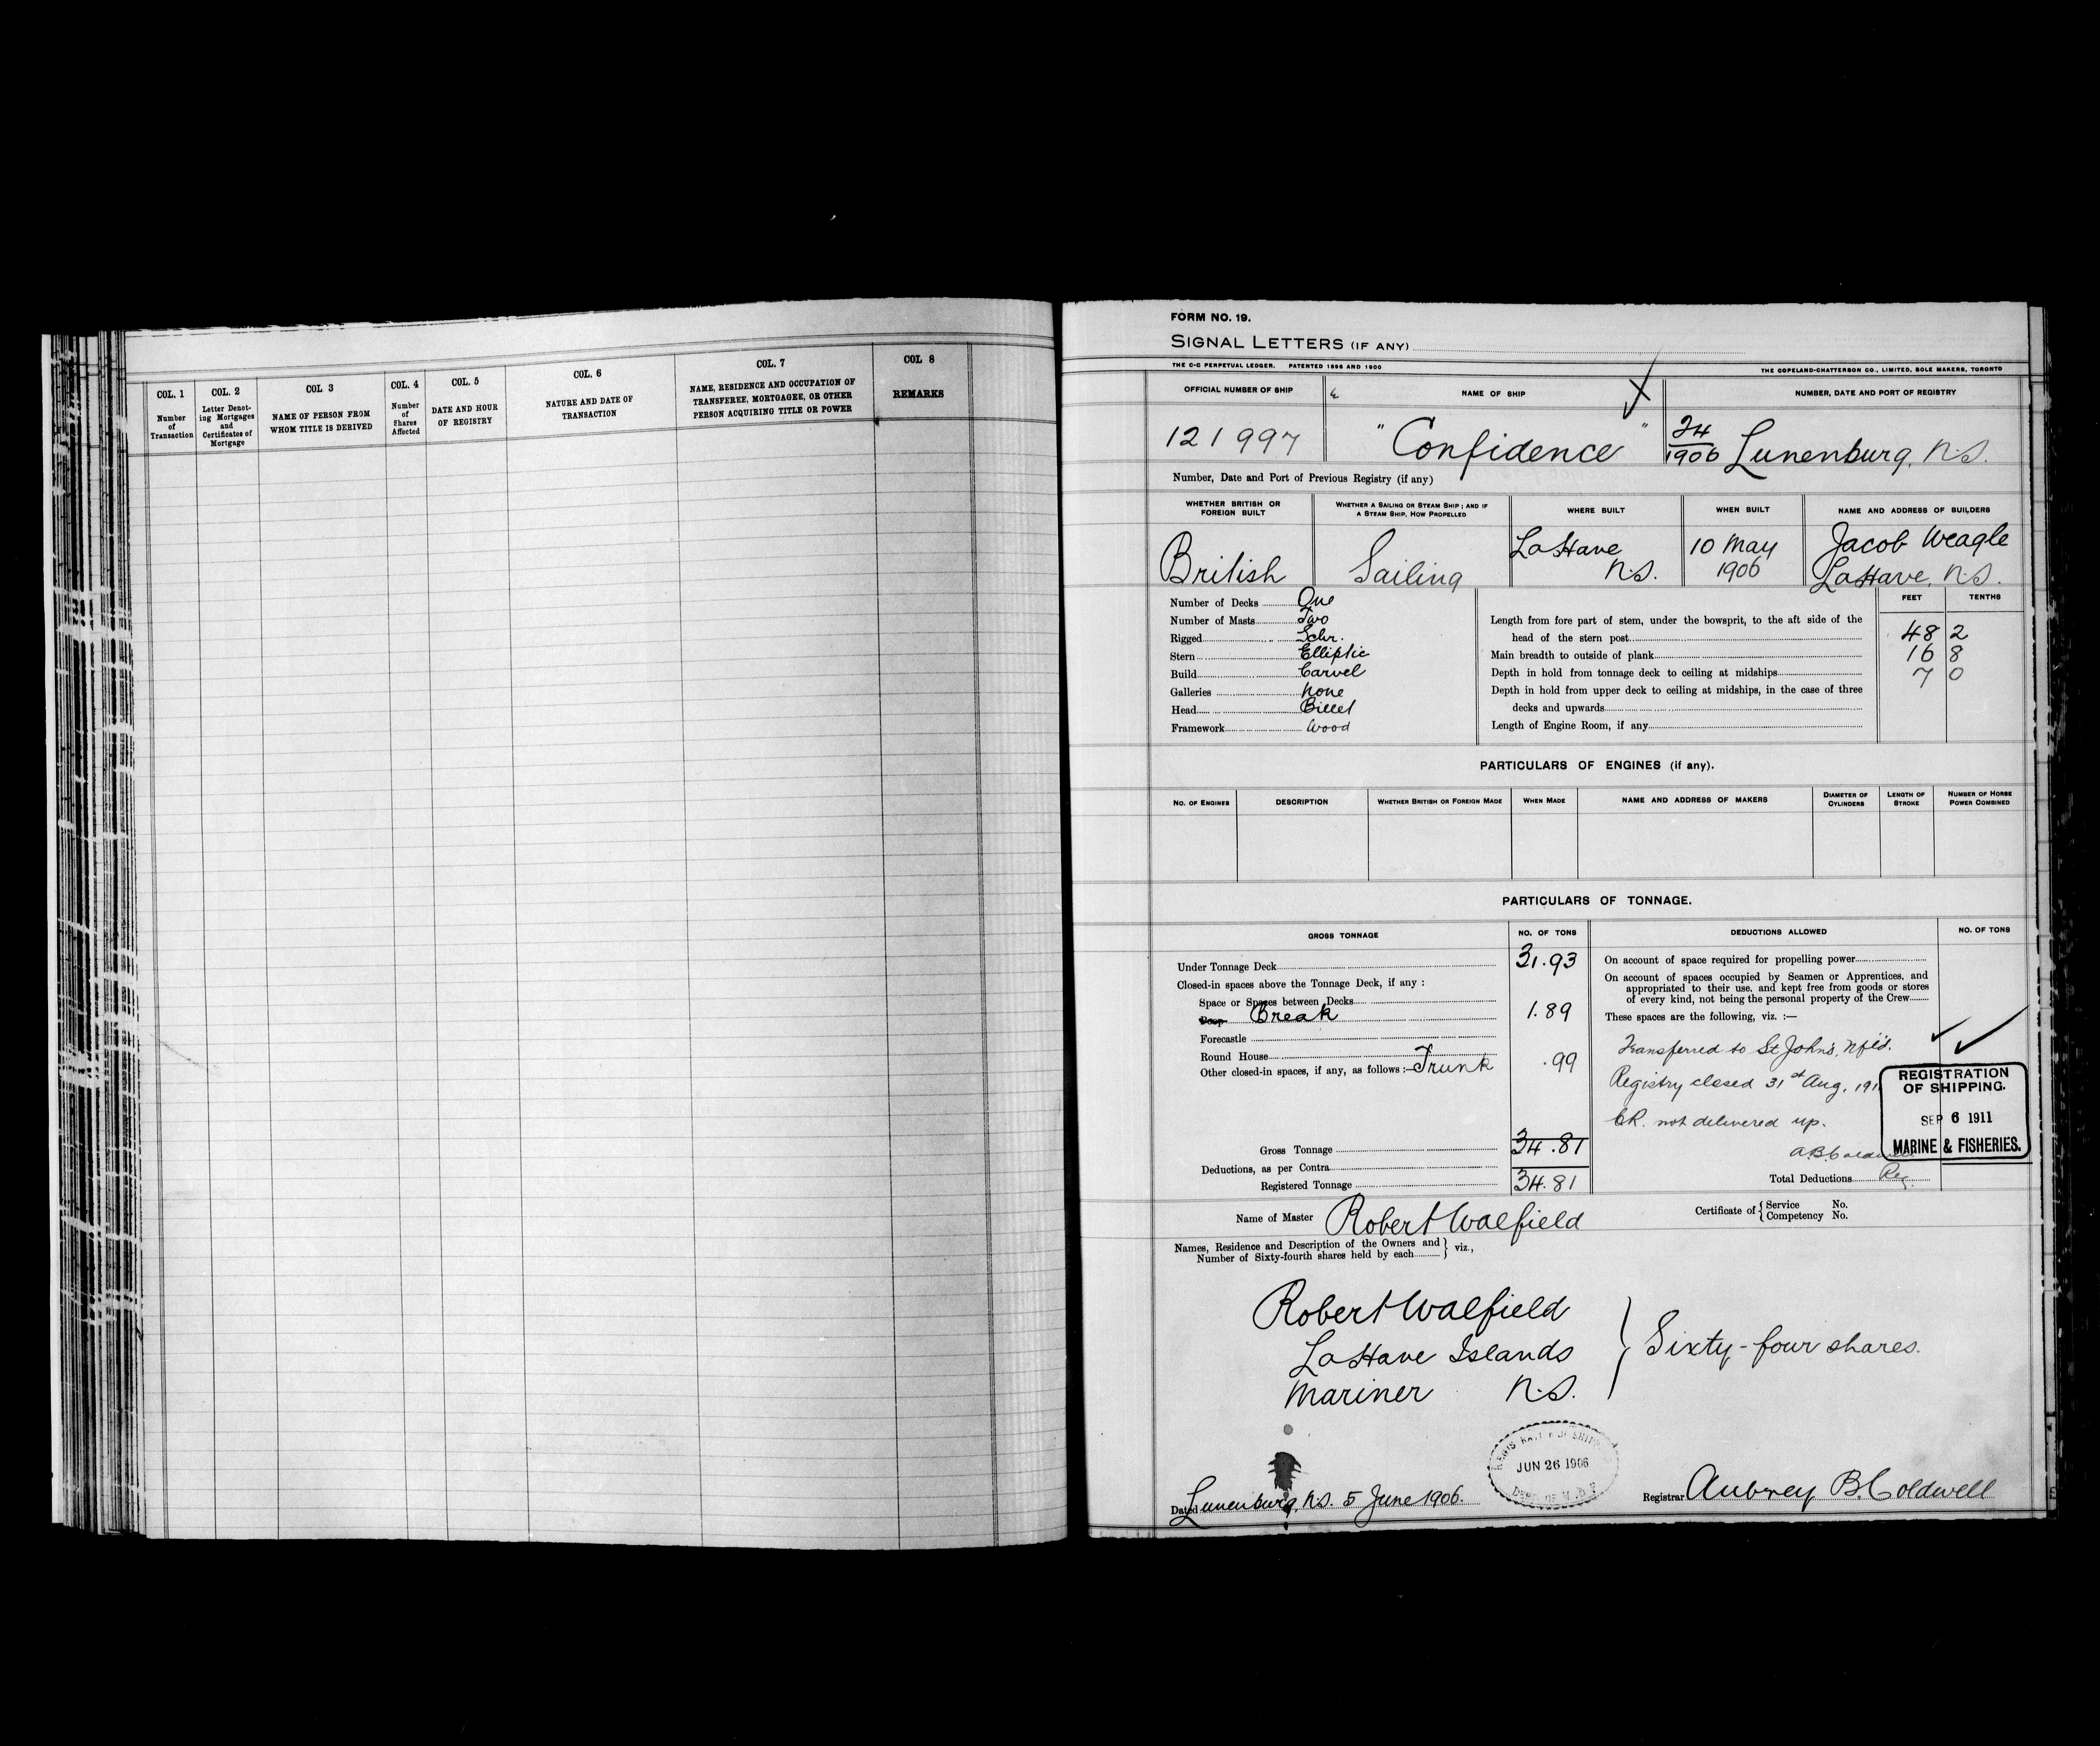 COL. 1
Number
of
Transaction
COL. 2
Letter Denot-
ing Mortgages
and
Certificates of
Mortgage
COL 3
NAME OF PERSON FROM
WHOM TITLE IS DERIVED
COL. 4
Number
of
Shares
Affected
COL. 5
DATE AND HOUR
OF REGISTRY
COL. 6
NATURE AND DATE OF
TRANSACTION
COL. 7
NAME, RESIDENCE AND OCCUPATION OF
TRANSFEREE, MORTGAGEE, OR OTHER
PERSON ACQUIRING TITLE OR POWER
COL 8
REMARKS
FORM NO. 19.
SIGNAL LETTERS (IF ANY)
THE C-C PERPETUAL LEDGER. PATENTED 1896 AND 1900
THE COPELAND-CHATTERSON CO., LIMITED, SOLE MAKERS, TORONTO
OFFICIAL NUMBER OF SHIP
NAME OF SHIP
NUMBER, DATE AND PORT OF REGISTRY
121997
"Confidence"
24/1906 Lunenburg, N.S.
Number, Date and Port of Previous Registry (if any)
WHETHER BRITISH OR
FOREIGN BUILT
WHETHER A SAILING OR STEAM SHIP; AND IF
A STEAM SHIP, HOW PROPELLED
WHERE BUILT
WHEN BUILT
NAME AND ADDRESS OF BUILDERS
British
Sailing
LaHave
N.S.
10 May
1906
Jacob Weagle
LaHave, N.S.
Number of Decks One
Number of Masts Two
Rigged Schr.
Stern Elliptic
Build Carvel
Galleries None
Head Billet
Framework Wood
FEET TENTHS
Length from fore part of stem, under the bowsprit, to the aft side of the
head of the stern post 48 2
Main breadth to outside of plank 16 8
Depth in hold from tonnage deck to ceiling at midships 7 0
Depth in hold from upper deck to ceiling at midships, in the case of three
decks and upwards
Length of Engine Room, if any
PARTICULARS OF ENGINES (if any).
NO. OF ENGINES
DESCRIPTION
WHETHER BRITISH OR FOREIGN MADE
WHEN MADE
NAME AND ADDRESS OF MAKERS
DIAMETER OF
CYLINDERS
LENGTH OF
STROKE
NUMBER OF HORSE
POWER COMBINED
PARTICULARS OF TONNAGE.
GROSS TONNAGE
NO. OF TONS
Under Tonnage Deck 31.93
Closed-in spaces above the Tonnage Deck, if any :
Space or Spaces between Decks
Poop Break 1.89
Forecastle
Round House
Other closed-in spaces, if any, as follows :— Trunk .99
Gross Tonnage 34.81
Deductions, as per Contra
Registered Tonnage 34.81
DEDUCTIONS ALLOWED
NO. OF TONS
On account of space required for propelling power
On account of spaces occupied by Seamen or Apprentices, and
appropriated to their use, and kept free from goods or stores
of every kind, not being the personal property of the Crew
These spaces are the following, viz. :—
Transferred to St John's, Nfld.
Registry closed 31st Aug, 191
C.R. not delivered up.
A.B. Coldwell
Reg.
REGISTRATION
OF SHIPPING.
SEP 6 1911
MARINE & FISHERIES.
Total Deductions
Name of Master Robert Walfield
Certificate of { Service No.
Competency No.
Names, Residence and Description of the Owners and
Number of Sixty-fourth shares held by each } viz.,
Robert Walfield
LaHave Islands
Mariner N.S.
} Sixty-four shares.
JUN 26 1906
Dated Lunenburg, N.S. 5 June 1906.
Registrar Aubrey B. Coldwell